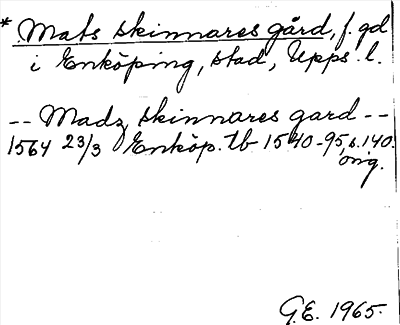 * Mats skinnares gård, f. gd
i Enköping, stad, Upps. l.
-- Madz skinnares gard --
1564 23/3 Enköp. tb 1540-95, s. 140.
orig.
G.E. 1965.